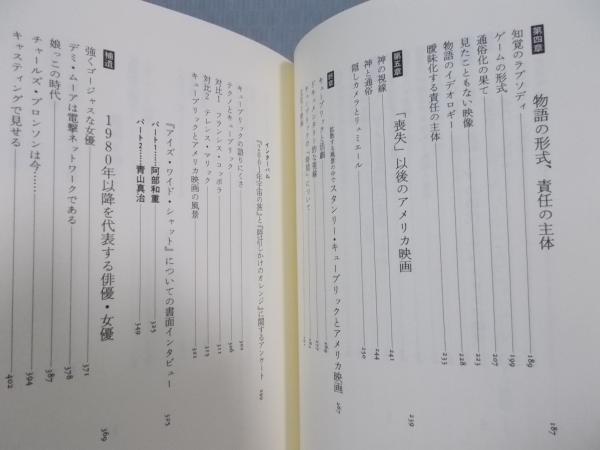 第四章
物語の形式、責任の主体 187
知覚のラプソディ 189
ゲームの形式 199
通俗化の果て 207
見たこともない映像 223
物語のイデオロギー 228
曖昧化する責任の主体 233
第五章
「喪失」以後のアメリカ映画 239
神の視線 241
神と通俗 244
隠しカメラとリュミエール 250
終章
拡散する風景の中で スタンリー・キューブリックとアメリカ映画
キューブリックと活劇
インターバル
『2001年宇宙の旅』と『時計じかけのオレンジ』に関するアンケート 299
キューブリックの語りにくさ 302
テクノとキューブリック 306
対比1 フランシス・コッポラ 311
対比2 テレンス・マリック
キューブリックとアメリカ映画の風景
『アイズ・ワイド・シャット』についての書面インタビュー 325
パート1……阿部和重 325
パート2……青山真治 349
補遺
1980年以降を代表する俳優・女優 369
強くゴージャスな女優 371
デミ・ムーアは電撃ネットワークである 378
娘っこの時代 387
チャールズ・ブロンソンは今…… 394
キャスティングで見せる 402